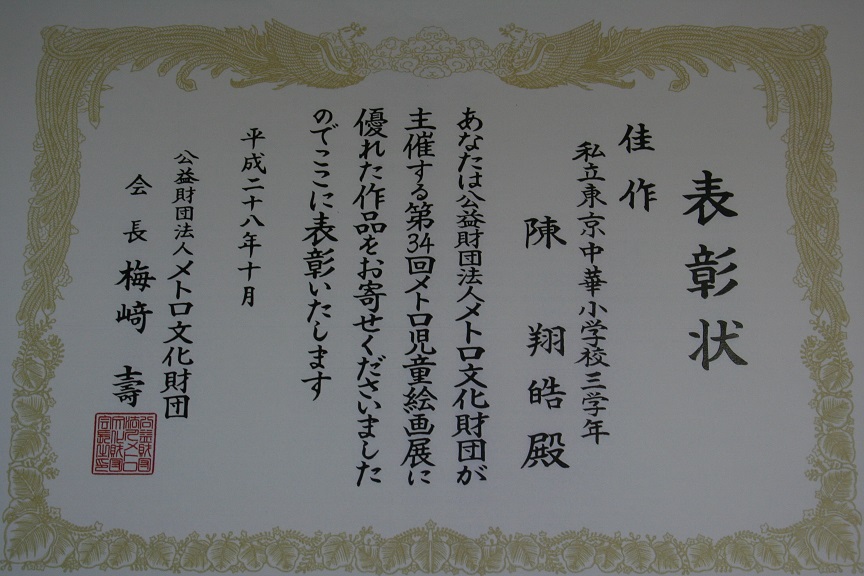 表彰状
佳作
私立東京中華小学校三学年
陳 翔皓殿
あなたは公益財団法人メトロ文化財団が
主催する第34回メトロ児童絵画展に
優れた作品をお寄せくださいました
のでここに表彰いたします
平成二十八年十月
公益財団法人メトロ文化財団
会長 梅﨑 壽